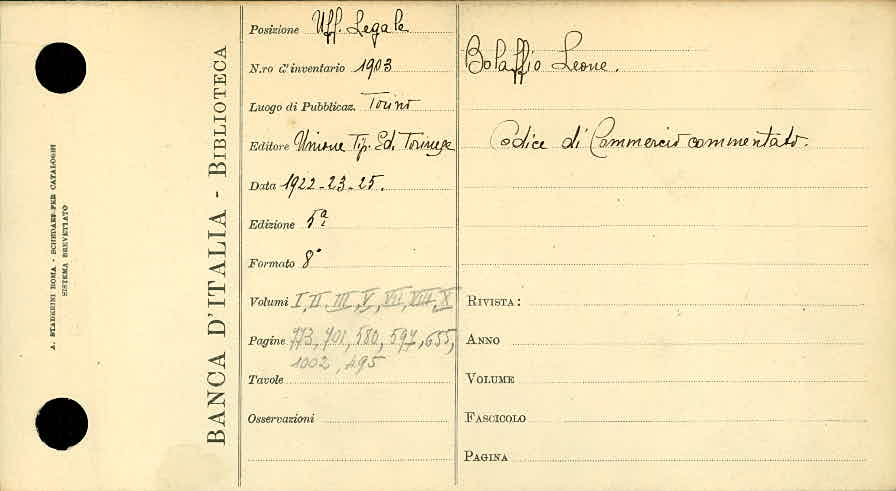 A. STADERINI ROMA - SCHEDARI PER CATALOGHI
SISTEMA BREVETTATO
BANCA D'ITALIA - BIBLIOTECA
Posizione Uff. Legale
N.ro d'inventario 1903
Luogo di Pubblicaz. Torino
Editore Unione Tip. Ed. Torinese
Data 1922-23-25.
Edizione 5ª
Formato 8°
Volumi I, II, III, V, VII, VIII, X
Pagine 773, 701, 580, 597, 655,
1002, 495
Tavole
Osservazioni
Bolaffio Leone.
Codice di Commercio commentato.
RIVISTA:
ANNO
VOLUME
FASCICOLO
PAGINA